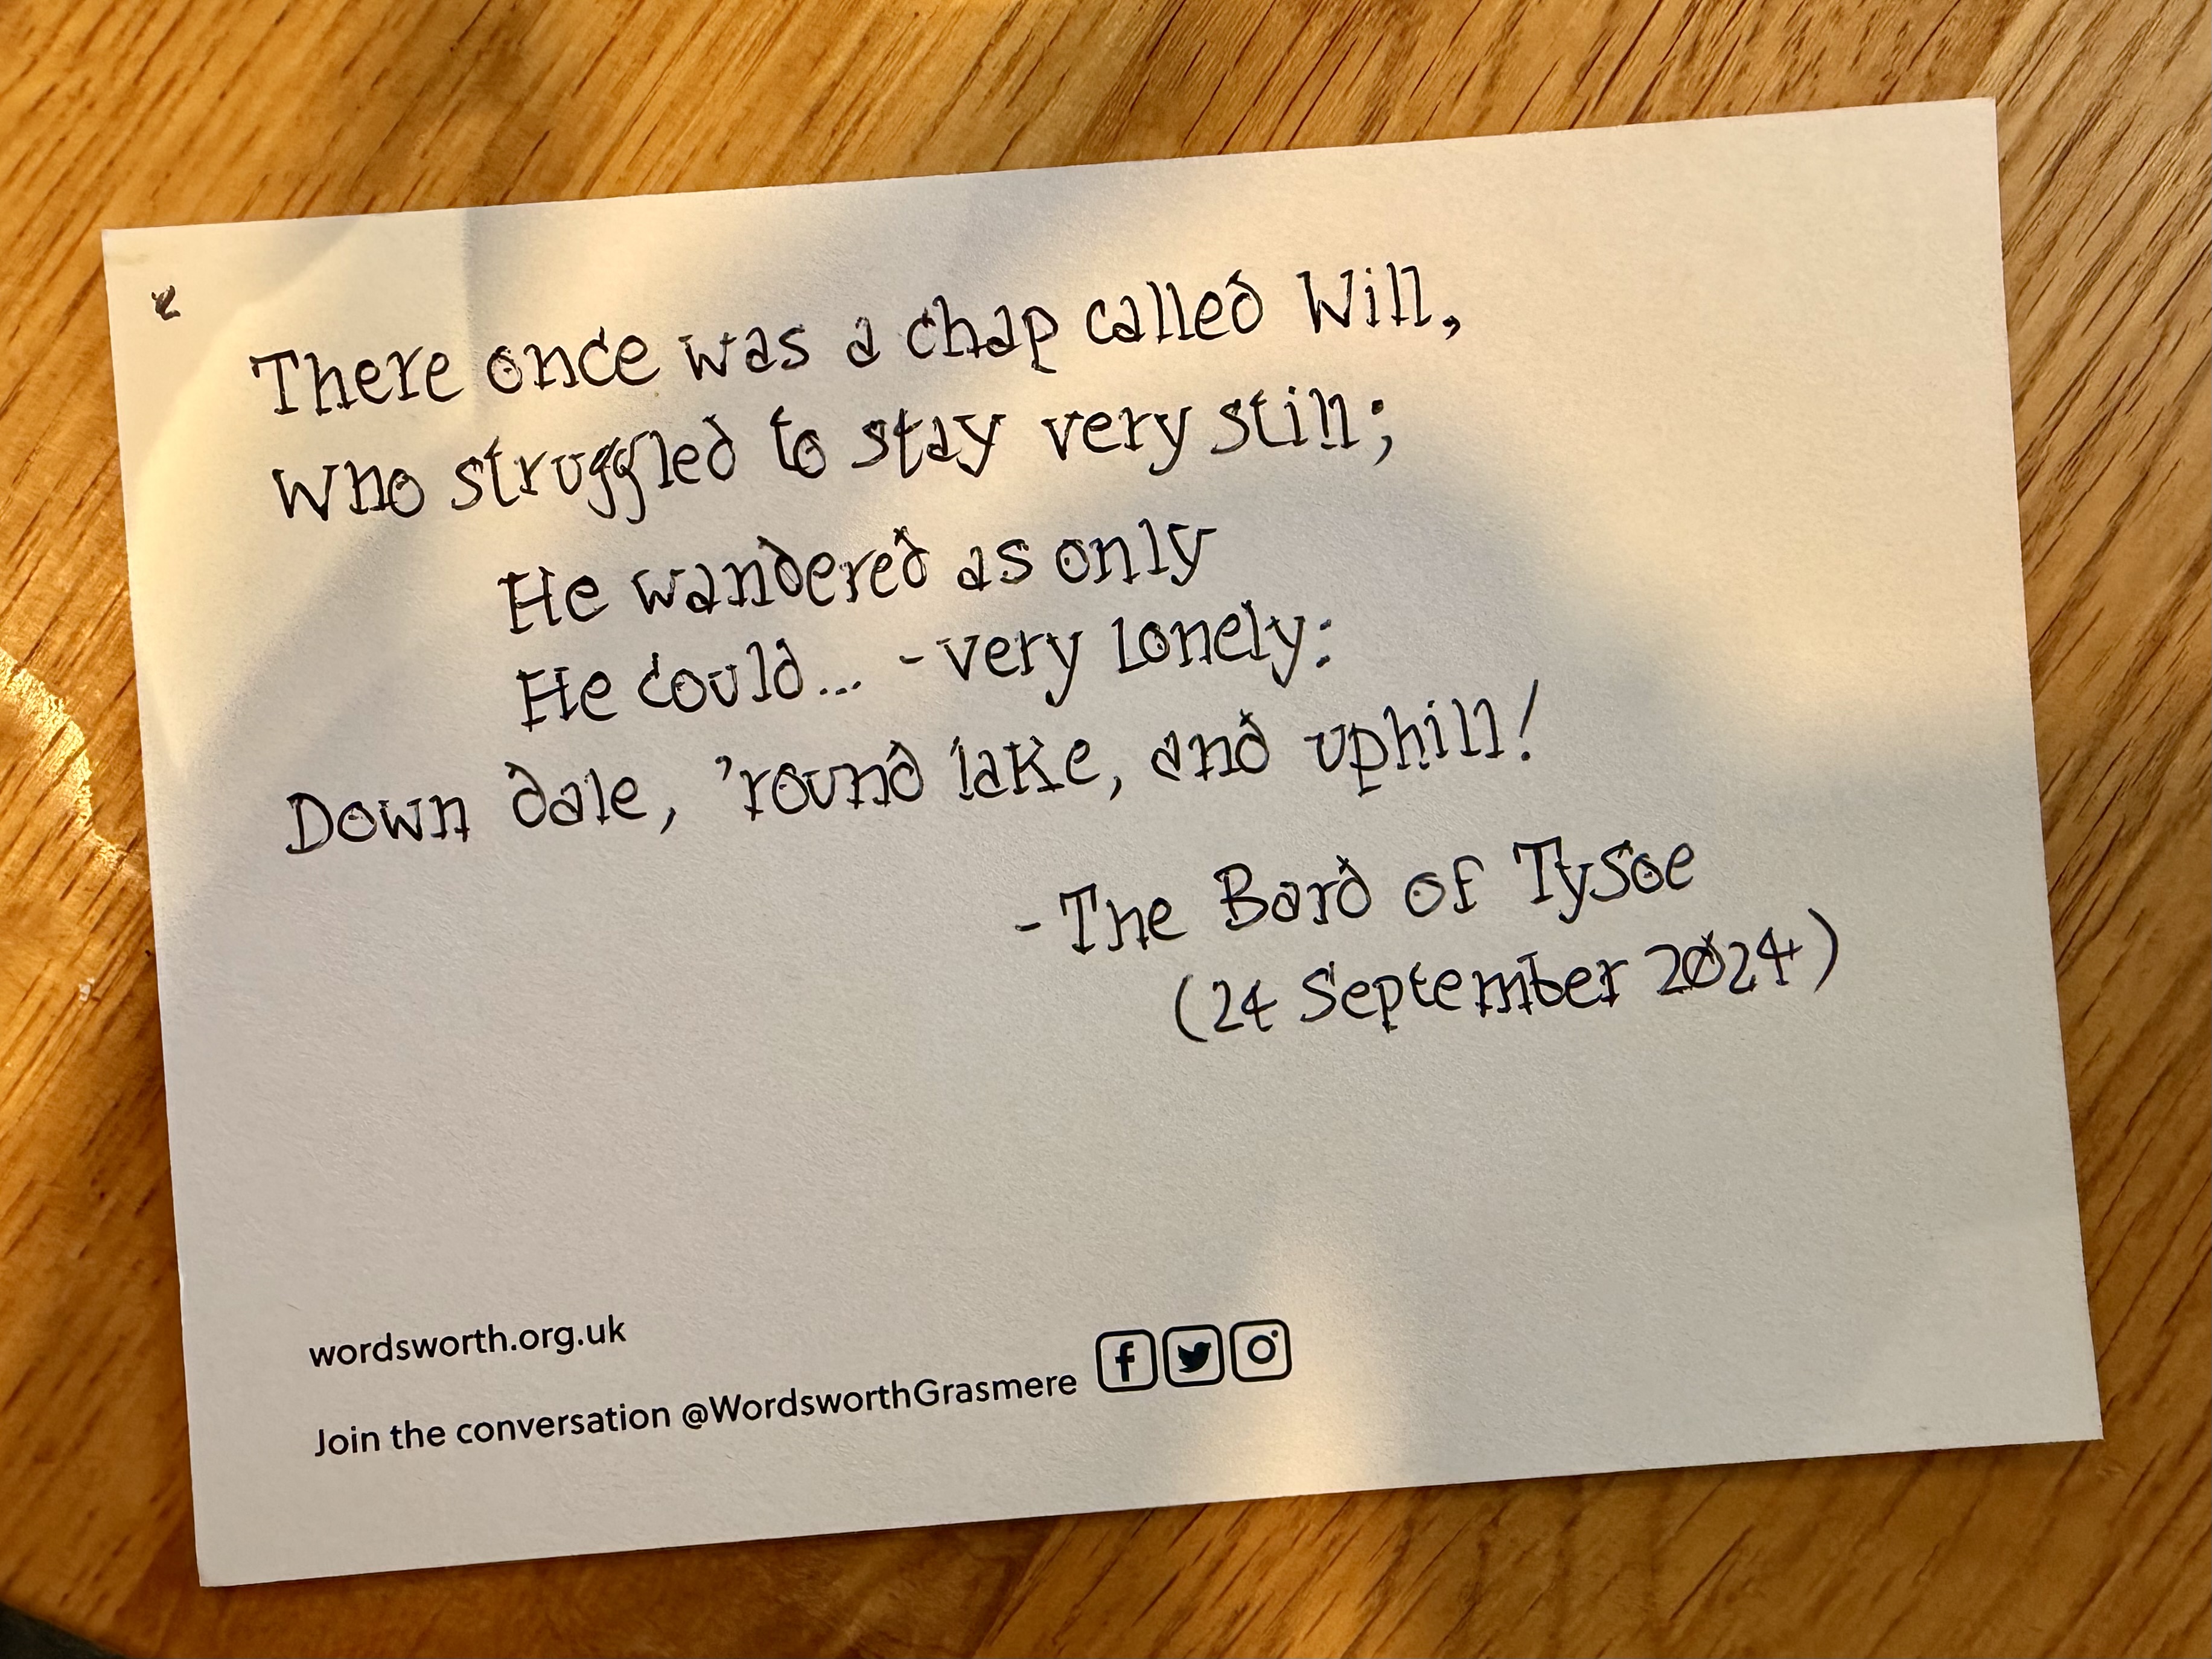 There once was a chap called Will,
Who struggled to stay very still;
He wandered as only
He could... - very lonely:
Down dale, 'round lake, and uphill!
- The Bard of Tysoe
(24 September 2024)
wordsworth.org.uk
Join the conversation @WordsworthGrasmere